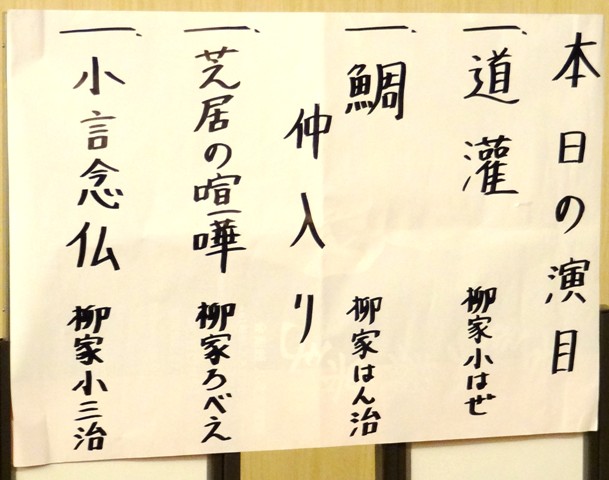 本日の演目
一、道灌 柳家小はぜ
一、鯛 柳家はん治
仲入り
一、芝居の喧嘩 柳家ろべえ
一、小言念仏 柳家小三治